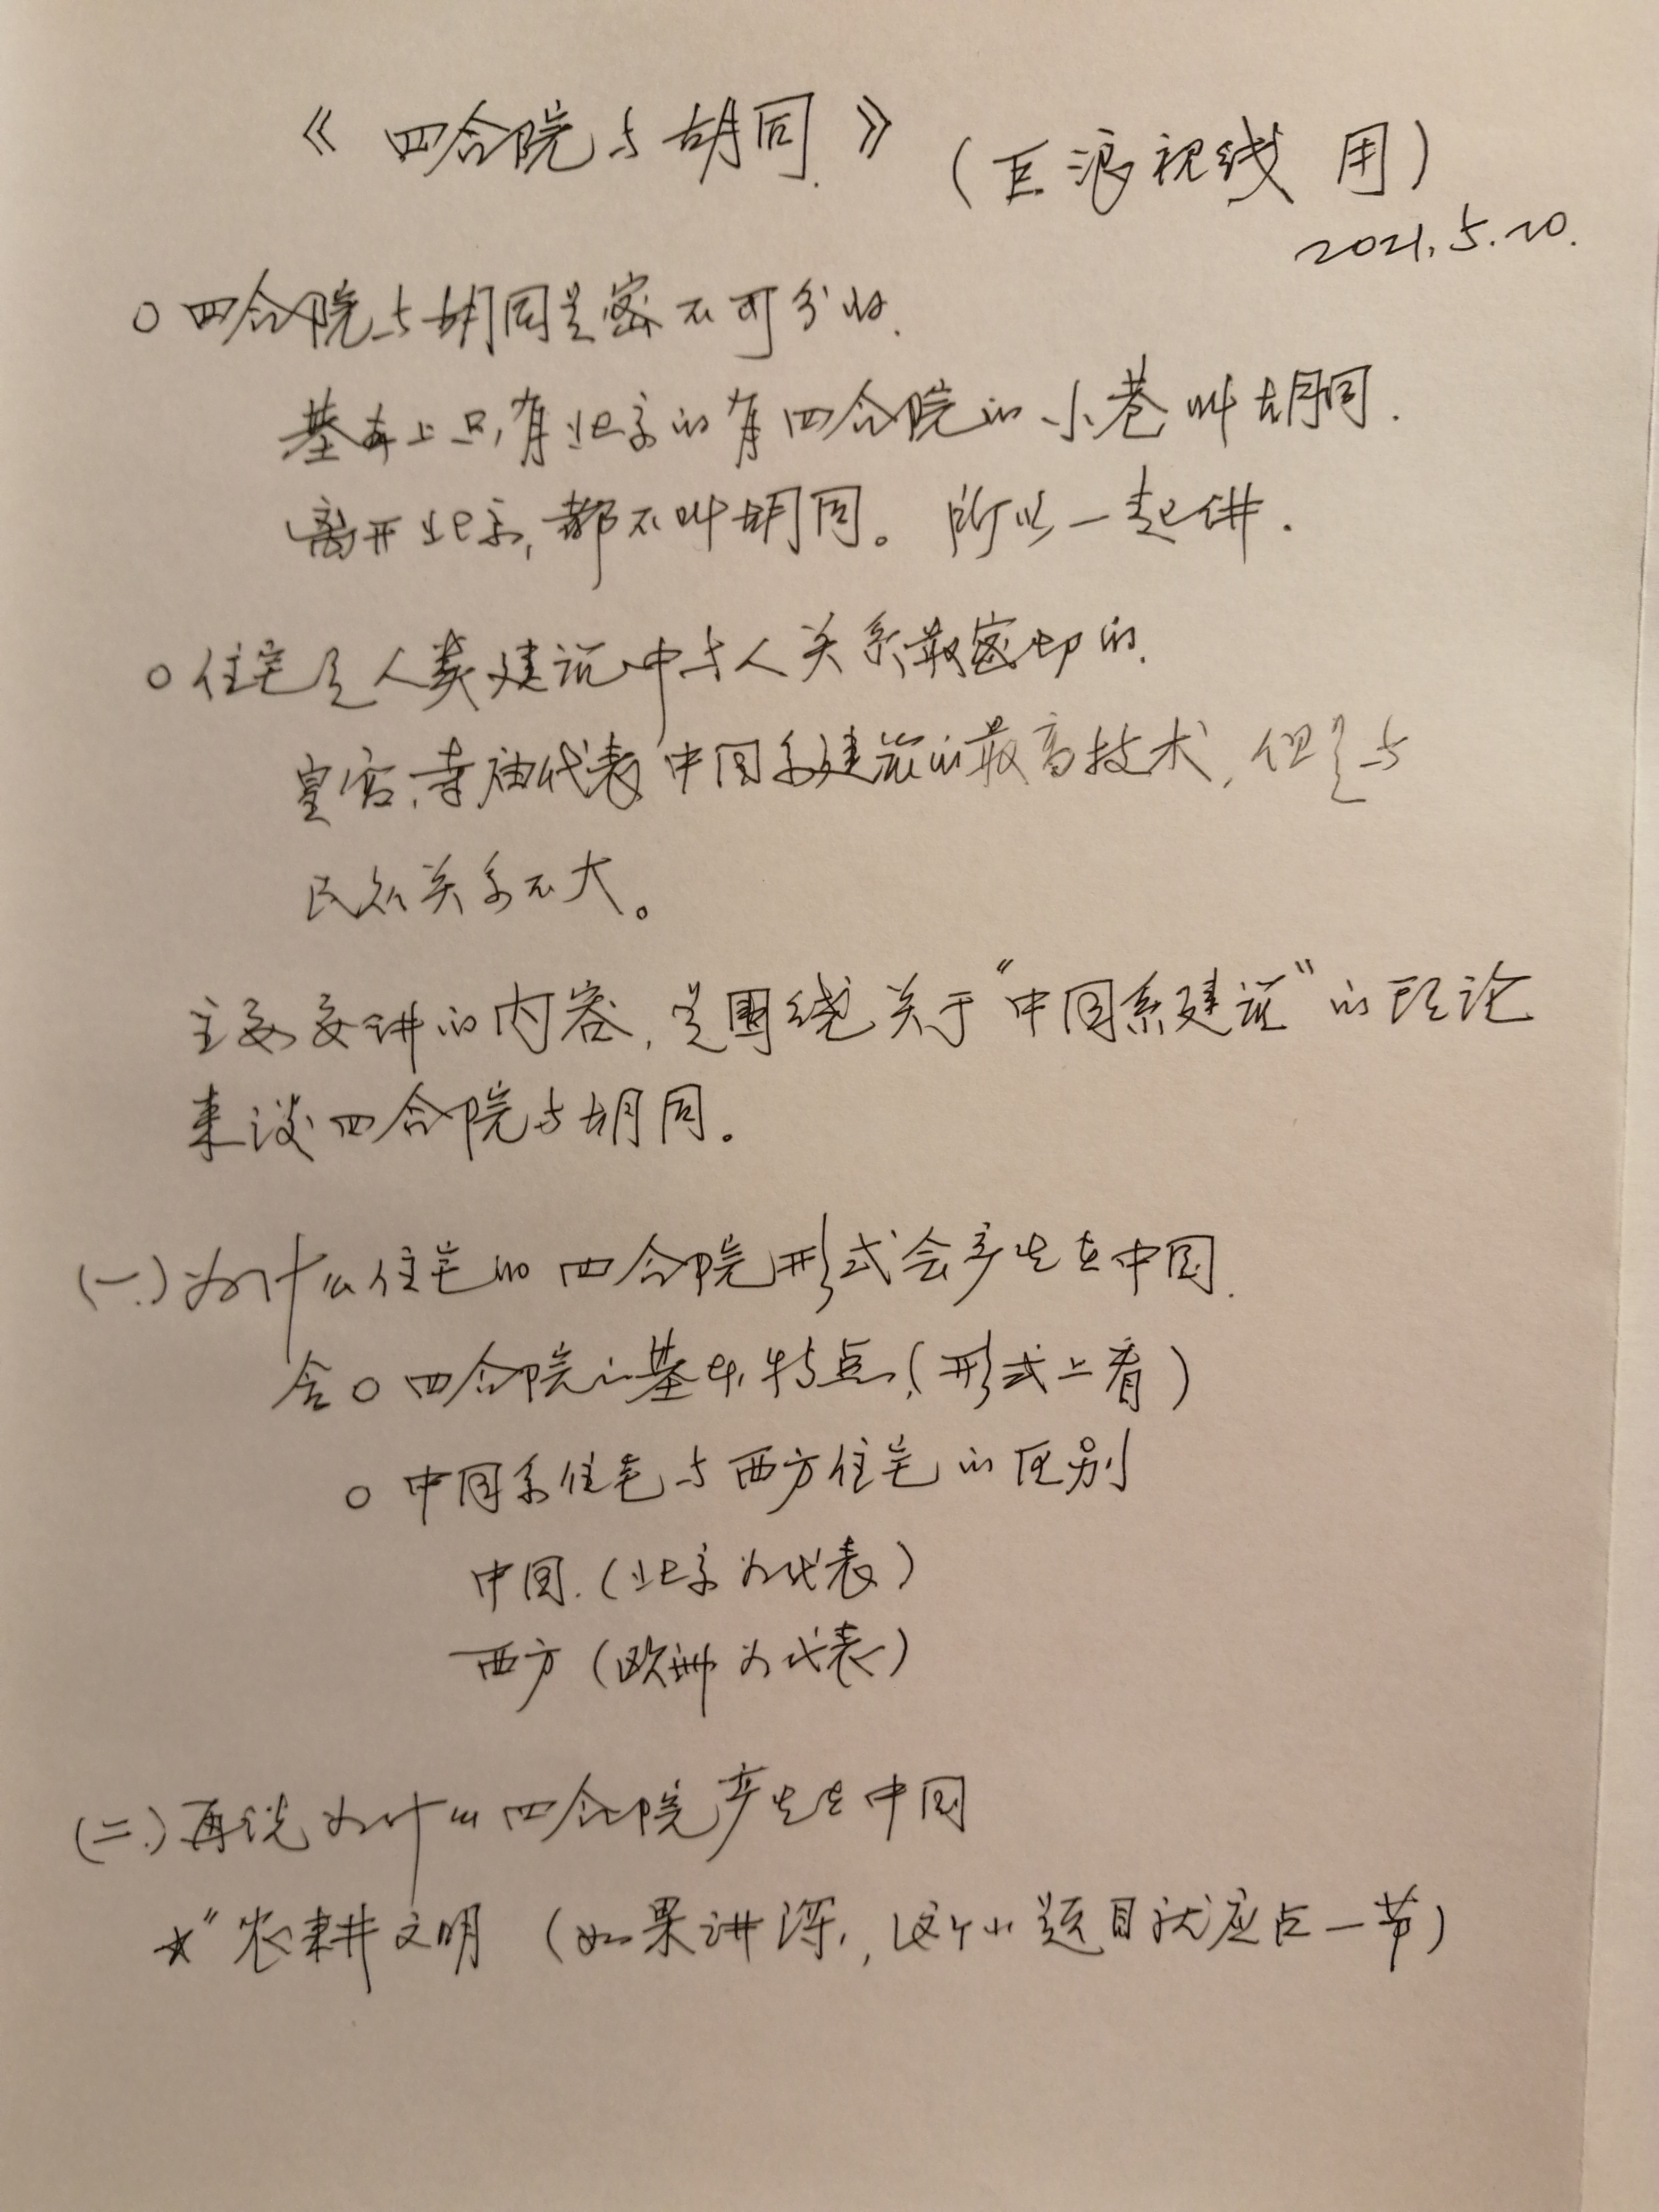 《四合院与胡同》（巨浪视线 用）
2021.5.20.
○ 四合院与胡同是密不可分的.
基本上只有北京的有四合院的小巷叫胡同.
离开北京,都不叫胡同。所以一起讲.
○ 住宅是人类建筑中与人关系最密切的.
皇宫、寺庙代表中国系建筑的最高技术,但是与
民众关系不大。
主要要讲的内容,是围绕关于“中国系建筑”的理论
来谈四合院与胡同。
(一.)为什么住宅的四合院形式会产生在中国.
含 ○ 四合院的基本特点(形式上看)
○ 中国系住宅与西方住宅的区别
中国.(北京为代表)
西方(欧洲为代表)
(二.)再谈为什么四合院产生在中国
☆“农耕文明 (如果讲深,这个小题目就应占一节)